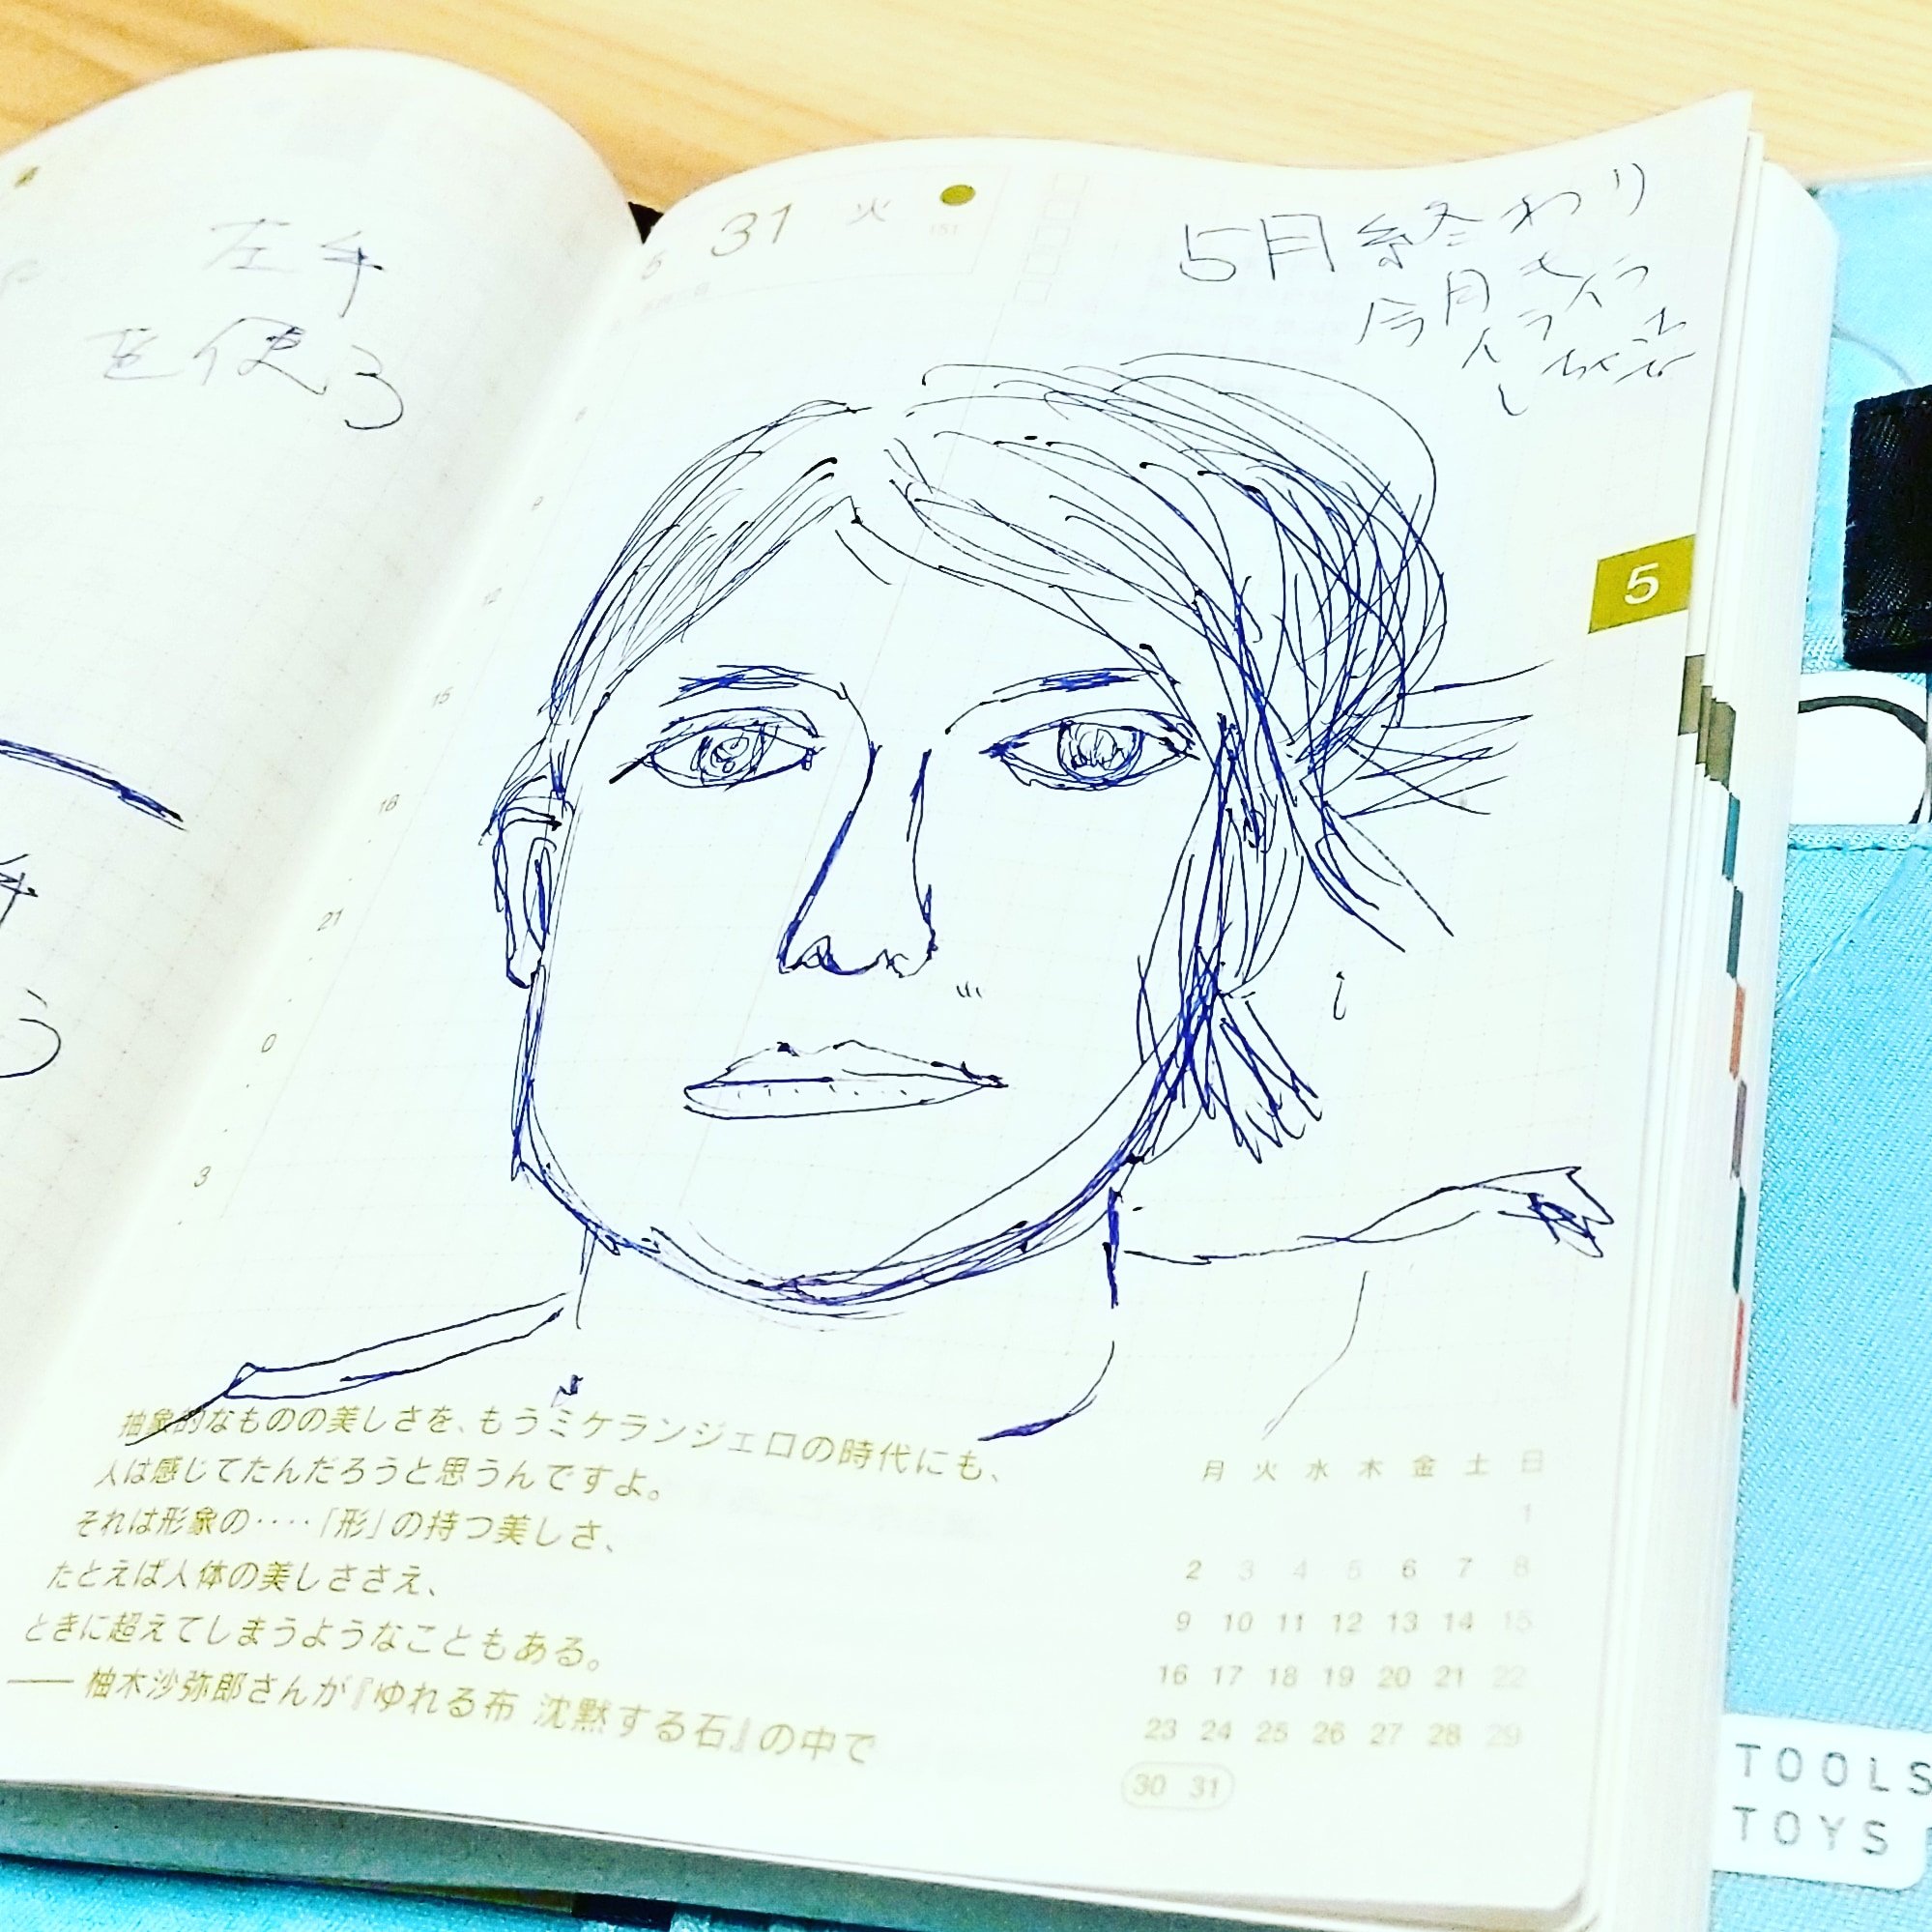 左手
を使う
5 31 火
151
5月終わり
今月も
5
9
12
15
18
21
0
3
抽象的なものの美しさを、もうミケランジェロの時代にも、
人は感じてたんだろうと思うんですよ。
それは形象の‥‥「形」の持つ美しさ、
たとえば人体の美しささえ、
ときに超えてしまうようなこともある。
―― 柚木沙弥郎さんが『ゆれる布 沈黙する石』の中で
月 火 水 木 金 土 日
1
2 3 4 5 6 7 8
9 10 11 12 13 14 15
16 17 18 19 20 21 22
23 24 25 26 27 28 29
30 31
TOOLS
TOYS